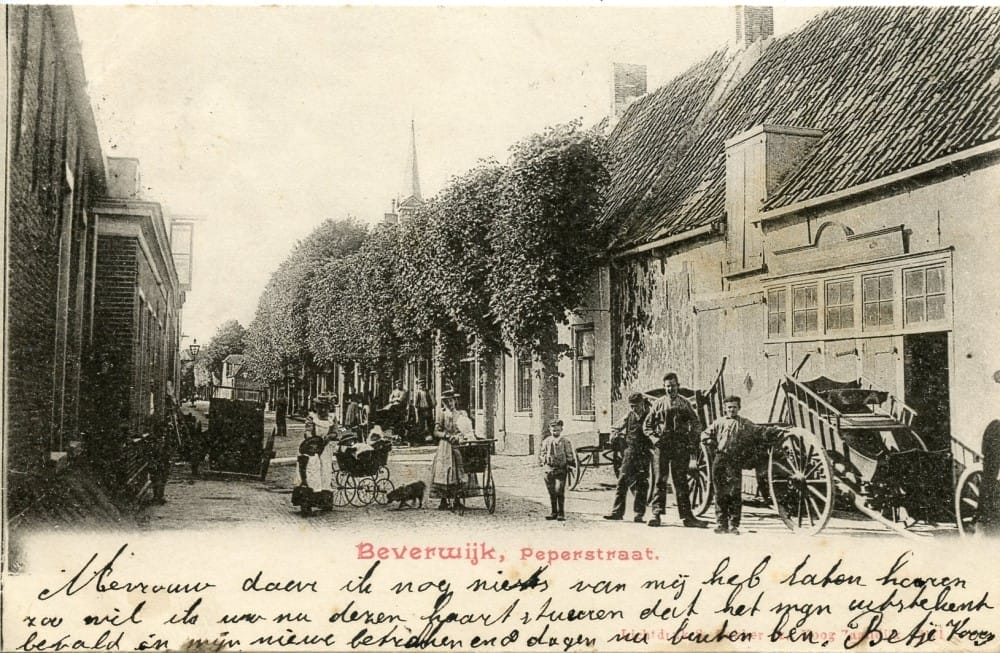 Beverwijk, Peperstraat.
Mevrouw daar ik nog niets van mij heb laten hooren
zoo wil ik uw nu dezen kaart stuuren dat het mijn uitstekent
bevald in mijn nieuwe betrekking en dagen nu buiten ben. Betje Koog